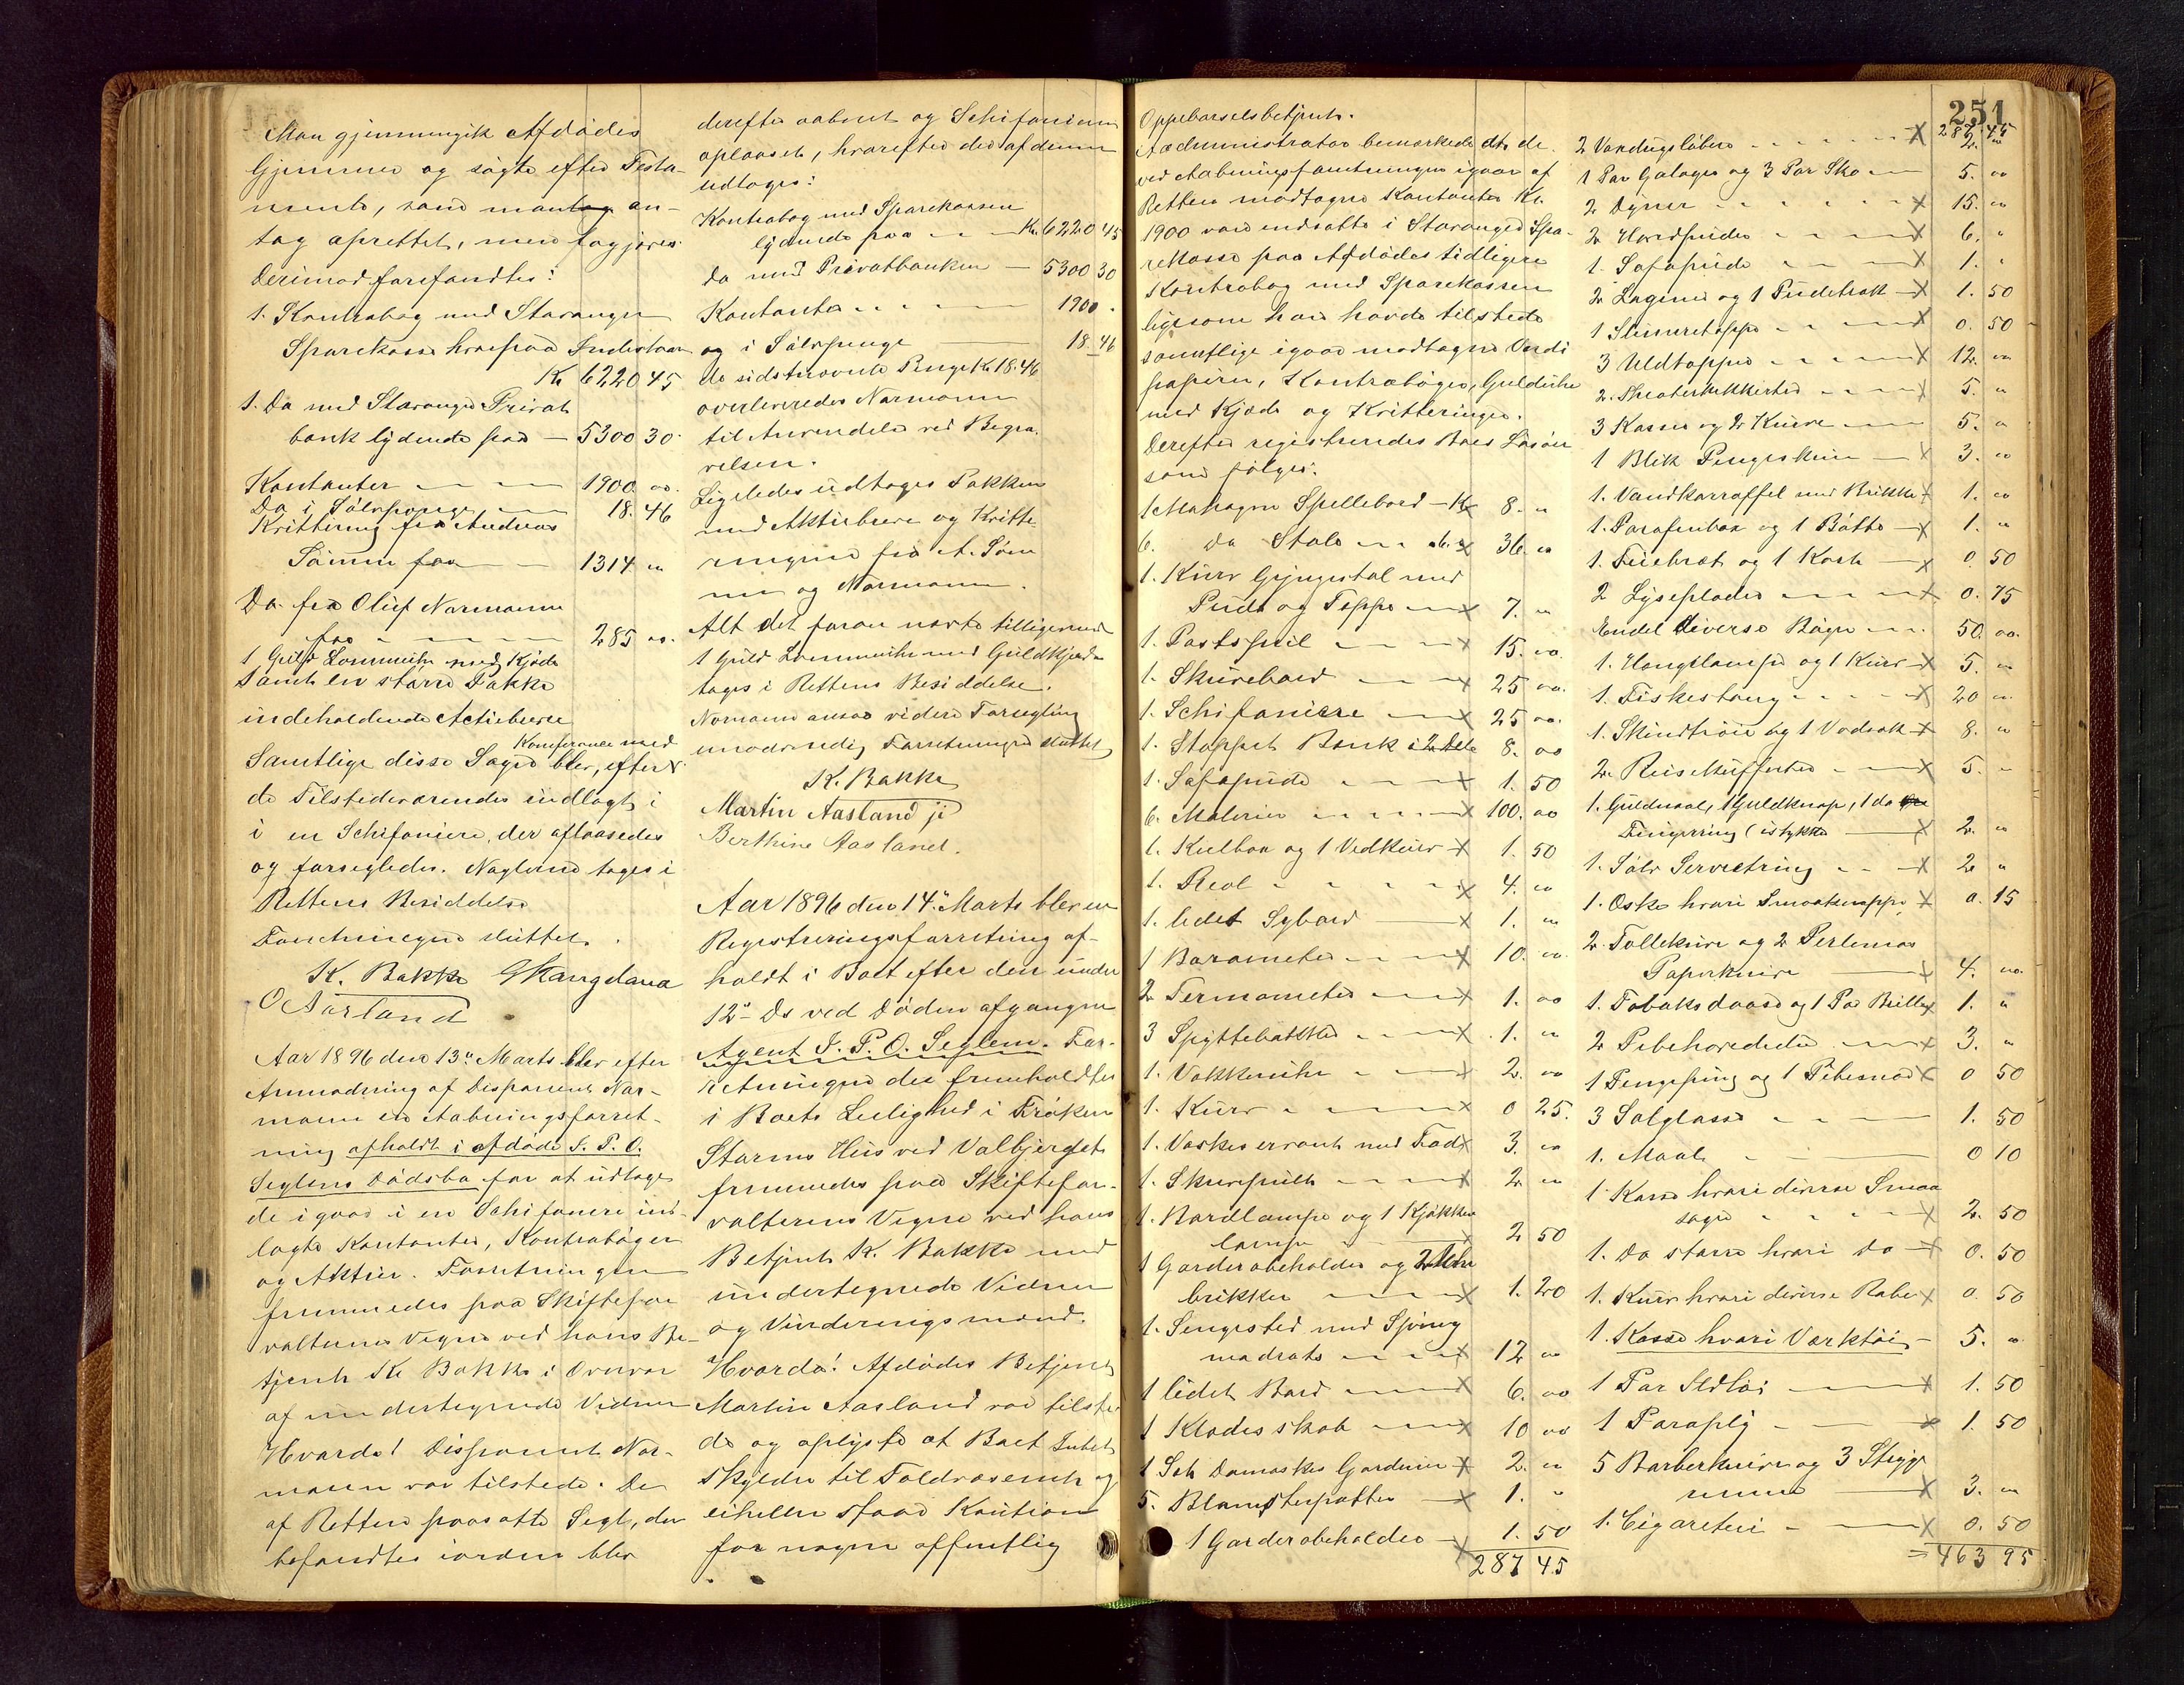 Man gjennemgik Afdödes
Gjemmer og sögte efter Testa-
mente, som man an-
tog oprettet, men forgjæves
Derimod forefandtes:
1. Kontrabog med Stavanger
Sparekasse hvorpaa Indestaar
Kr 6220 45
1. Do med Stavanger Privat
bank lydende paa — 5300 30
Kontanter — — 1900. oo.
Do i Sölvpenge — 18. 46
Kvittering fra Andreas
Sömme paa — 1314 "
Do fra Oluf Normann
paa — — — 285 oo.
1 Guld Lommeuhr med Kjæde
Samt en större Pakke
indeholdende Actiebreve
Konferance med
Samtlige disse Sager blev, efter
de Tilstedeværendes indlagt i
i en Schifoniere, der aflaasedes
og forsegledes. Nøglerne toges i
Rettens Besiddelse
Forretningen sluttet.
K. Bakke GSkangeland
O Aarland
Aar 1896 den 13de Marts blev efter
Anmodning af Disponent Nor-
mann en Aabningsforret-
ning afholdt i afdöde S. P. O.
Seglems Dödsbo for at udtage
de igaar i en Schifoniere ind-
lagte Kontanter, Kontraböger
og Aktier. Forretningen
fremmedes paa Skiftefor
valterens Vegne ved hans Be-
tjent K Bakke i Overvær
af undertegnede Vidner
Hvorda! Disponent Nor-
mann var tilstede. De
af Retten paasatte Segl, der
befandtes iorden blev
derefter aabnet og Schifonieren
oplaaset, hvorefter der af denne
udtoges:
Kontrabog med Sparekassen
lydende paa — Kr. 6220 45
Do med Privatbanken — 5300 30
Kontanter — 1900 "
og i Sölvpenge 18. 46
de sidstnævnte Penge Kr 18.46
overleveredes Normann
til Anvendelse ved Begra-
velsen.
Ligeledes udtoges Pakken
med Aktiebreve og Kvitte
ringene fra A. Söm
me og Normann.
Alt det foran nævnte tilligemed
1 Guld Lommeuhr med Guldkjæde
toges i Rettens Besiddelse.
Normann ansaa videre Forsegling
unödvendig Forretningen sluttet
K. Bakke
Martin Aasland jr
Berthine Aasland.
Aar 1896 den 14de Marts blev en
Registreringsforretning af-
holdt i Boet efter den under
12te Ds ved Döden afgangne
Agent S. P. O. Seglem. For-
retningen der fremholdtes
i Boets Leilighed i Fröken
Storms Hus ved Valbjerget
fremmedes paa Skiftefor-
valterens Vegne ved hans
Betjent K. Bakke med
undertegnede Vidner
og Vurderingsmænd.
Hvorda! Afdödes Betjent
Martin Aasland var tilste
de og oplyste at Boet Intet
skylder til Toldvæsenet og
eiheller staar Kaution
for nogen offentlig
251
Oppebørselsbetjent.
Administrator bemærkede at de
ved Aabningsforretningen igaar af
Retten modtagne Kontanter Kr.
1900 vare indsatte i Stavanger Spa-
rekasse paa Afdödes tidligere
Kontrabog med Sparekassen
ligesom han havde tilstede
samtlige igaar modtagne Værdi
papirer, Kontraböger, Gulduhr
med Kjæde og Kvitteringer.
Derefter registreredes Boets Lösöre
som fölger:
1 Mahagoni Spellebord — Kr 8. "
6. Do Stole — à 6. 36. oo
1. Kurv Gyngestol med
Pude og Teppe — 7. "
1. Postspeil — 15. oo.
1. Skrivebord — 25 oo.
1. Schifoniere — 25 oo.
1. Stoppet Bænk i 2 Dele 8. oo
1. Sofapude — 1. 50
6. Malerier — 100. oo
1. Kulbox og 1 Vedkurv 1. 50
1. Reol — 4. oo
1. lidet Sybord — 1. "
1 Barometer — 10. oo.
2 Termometer — 1. oo
3 Spyttebakker — 1. "
1. Vækkeuhr — 2. oo
1. Kurv — 0 25.
1. Vaskeservant med Fad 3. oo
1. Skrivepult — 2 "
1. Bordlampe og 1 Kjökken
lampe — 2 50
1 Garderobeholder og 2 Uhr
brikker — 1. 20
1. Sengested med Spring
madrats — 12 oo
1 lidet Bord — 6. oo
1 Klædesskab — 10 oo
1 Set Damaskes Gardiner 2. "
5. Blomsterpotter — 1. "
1 Garderobeholder — 1. 50
287 45
287 45
2 Vandugslöbere — 2. "
1 Par Galoger og 3 Par Sko — 5. oo
2 Dyner — 15. "
2 Hovedpuder — 6. "
1. Sofapude — 1. "
2 Lagener og 1 Pudetræk 1. 50
1 Slumretæppe — 0. 50
3 Uldtæpper — 12. "
2. Theaterkikkerter — 5. "
3 Kasser og 2 Kurve — 5. "
1 Blik Pengeskrin — 3. oo
1. Vandkarraffel med Brikke 1. oo
1. Parafinbox og 1 Bötte — 1. "
1. Feiebræt og 1 Kost — 0. 50
2 Lyseplader — 0. 75
Endel Diverse Böger — 50. oo.
1. Hængelampe og 1 Kurv 5. "
1. Fiskestang — 20 "
1. Skindtröie og 1 Vadsæk 8. "
2. Reisekufferter — 5. "
1. Guldnaal, 1 Guldknap, 1 do
Fingerring (istykke — 2. "
1. Sölv Servietring — 2 "
1. Oske hvori Smaaknapper 0. 15
2. Tolleknive og 2 Perlemors
Papirknive — 4. oo
1. Tobaksdaase og 1 Par Briller 1. "
2 Pibehoveder — 3. "
1 Pengepung og 1 Pibesnor 0 50
3 Salglasse — 1. 50
1. Maal — 0 10
1 Kasse hvori diverse Smaa
sager — 2. 50
1. Do större hvori Do — 0. 50
1. Kurv hvori diverse Raber 0. 50
1. Kasse hvori Værktöi — 5. "
1 Par Ildtöi — 1. 50
1 Paraply — 1. 50
5 Barberknive og 3 Stryge
remme — 3. "
1. Cigareteri — 0. 50
463 95